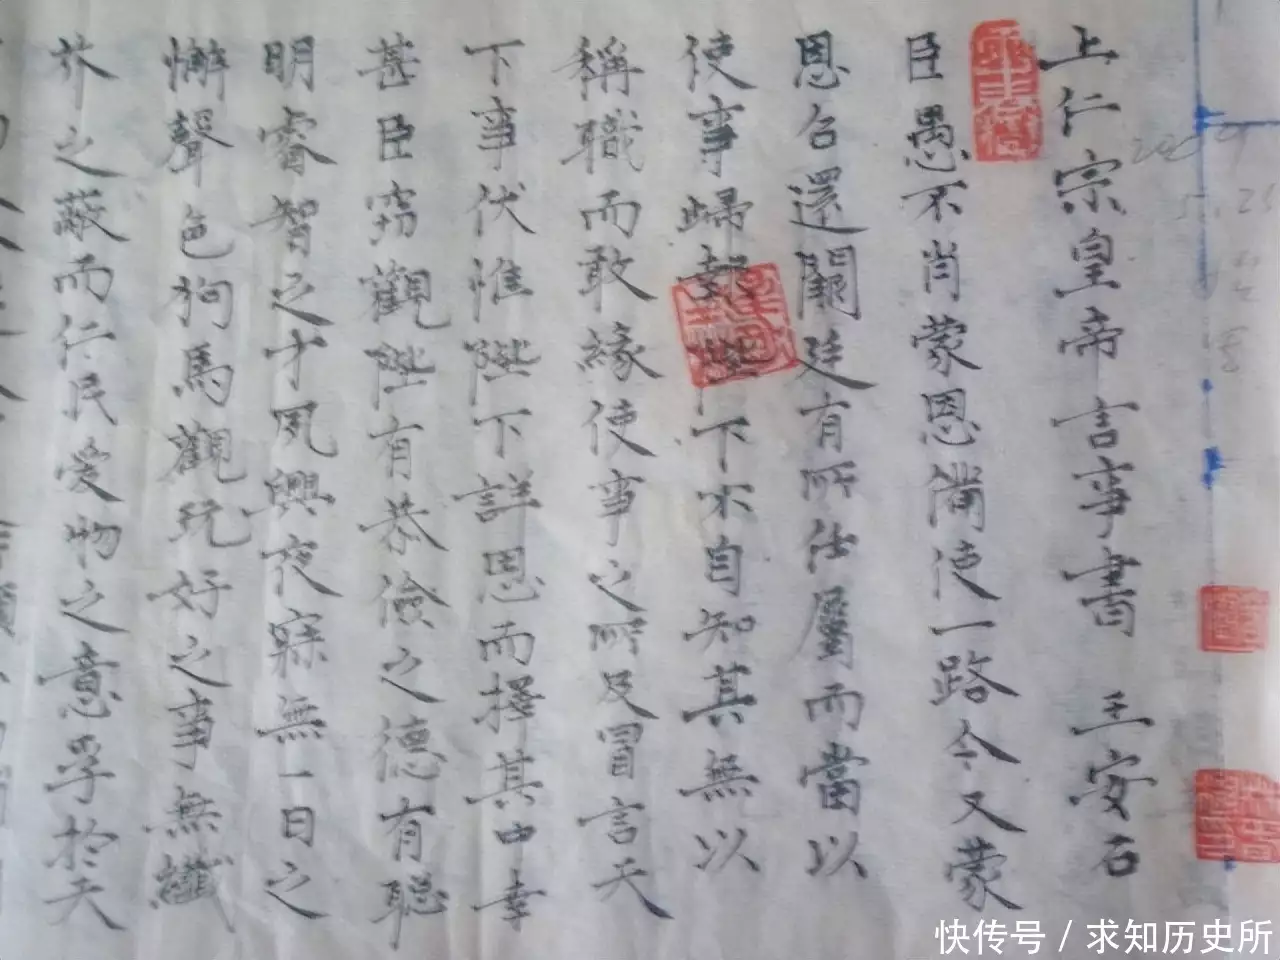 上仁宗皇帝言事書 王安石
臣愚不肖蒙恩備使一路今又蒙
恩召還闕廷有所任屬而當以
使事歸報陛下不自知其無以
稱職而敢緣使事之所及冒言天
下事伏惟陛下詳思而擇其中幸
甚臣竊觀陛有恭儉之德有聡
明睿智之才夙興夜寐無一日之
懈聲色狗馬觀玩好之事無纖
芥之蔽而仁民愛物之意孚於天
快传号 / 求知历史所